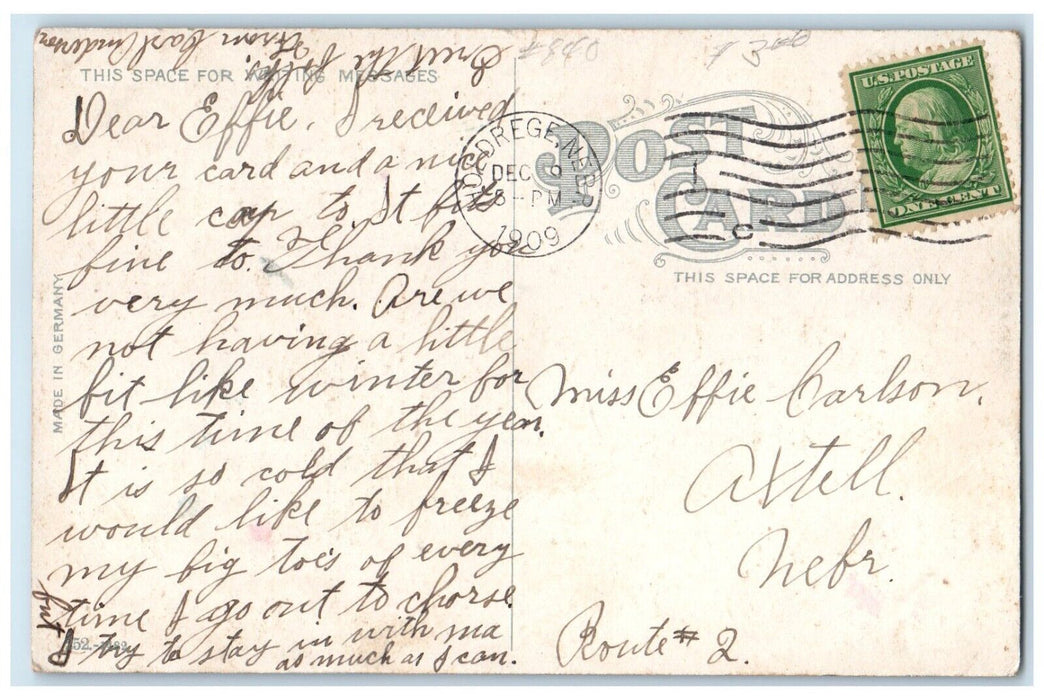 Greet the folks.
From Carl Anderson
THIS SPACE FOR WRITING MESSAGES
Dear Effie. I received
your card and a nice
little cap to. It fits
fine to. Thank you
very much. Are we
not having a little
bit like winter for
this time of the year.
It is so cold that I
would like to freeze
my big toe's of every
time I go out to chorse
but I try to stay in with ma
as much as I can.
MADE IN GERMANY
HOLDREGE, NEBR.
DEC 9
8-PM
1909
POST CARD
THIS SPACE FOR ADDRESS ONLY
U.S. POSTAGE
ONE CENT
C
Miss Effie Carlson,
Axtell.
Nebr.
Route # 2.